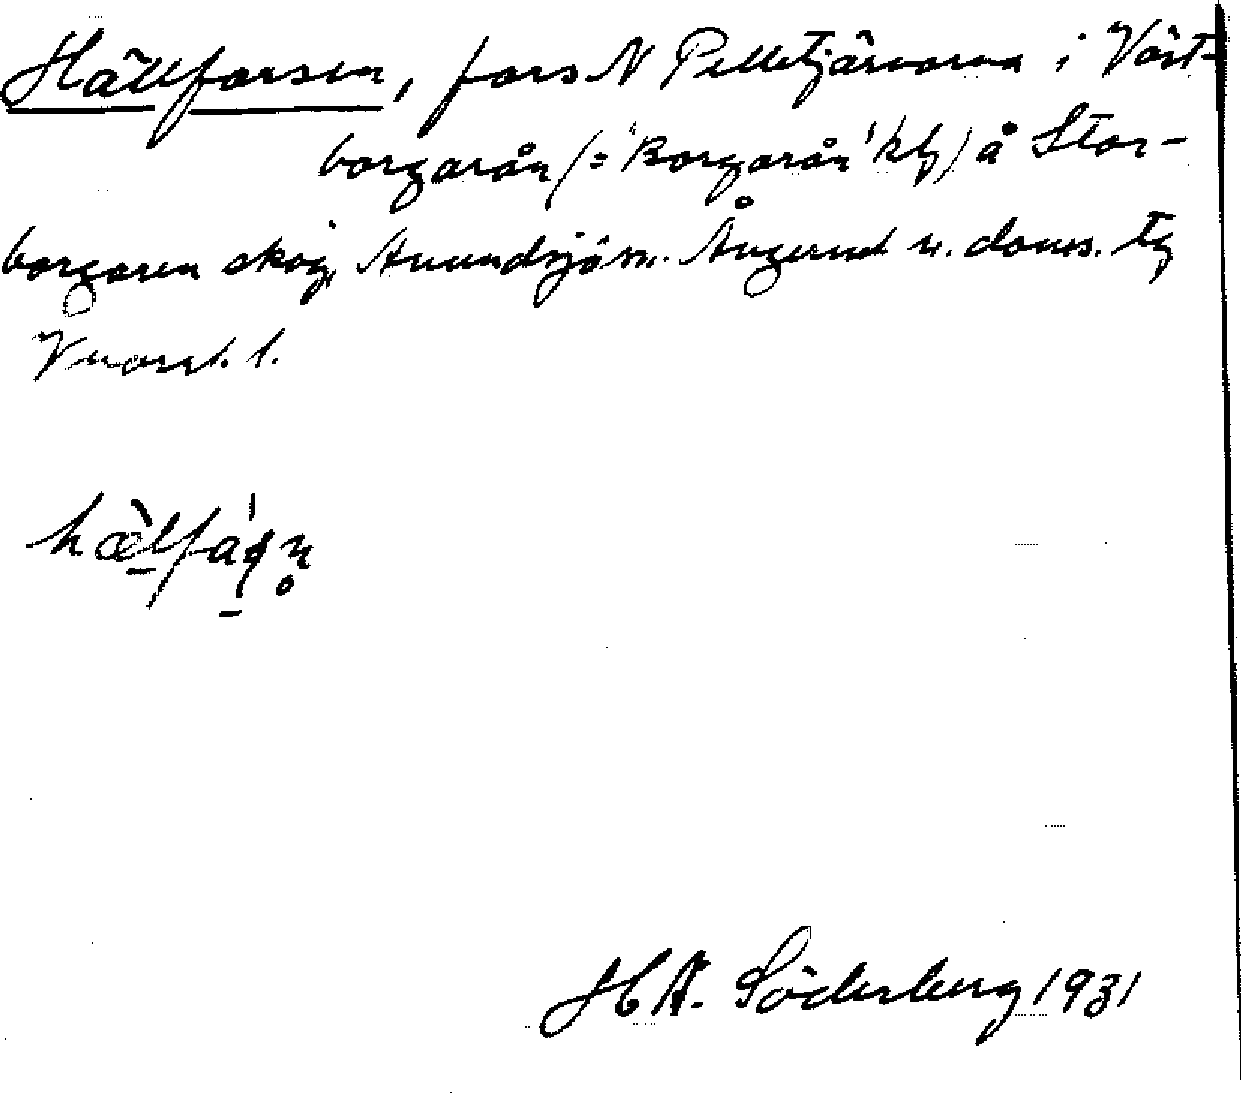 Hällforsen, fors N Pelletjärnarna i Väst-
borgarån (= 'Borgarån' kbl) å Stor-
borgaren skog, Anundsjö sn. Ångerml n. doms. tg
hæ̀lfáṣn̥
H A. Söderberg 1931